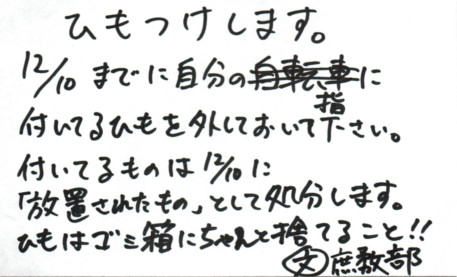 ひもつけします。
12/10 までに自分の自転車に
指
付いてるひもを外しておいて下さい。
付いてるものは12/10に
「放置されたもの」として処分します。
ひもはゴミ箱にちゃんと捨てること!!
文 庶務部